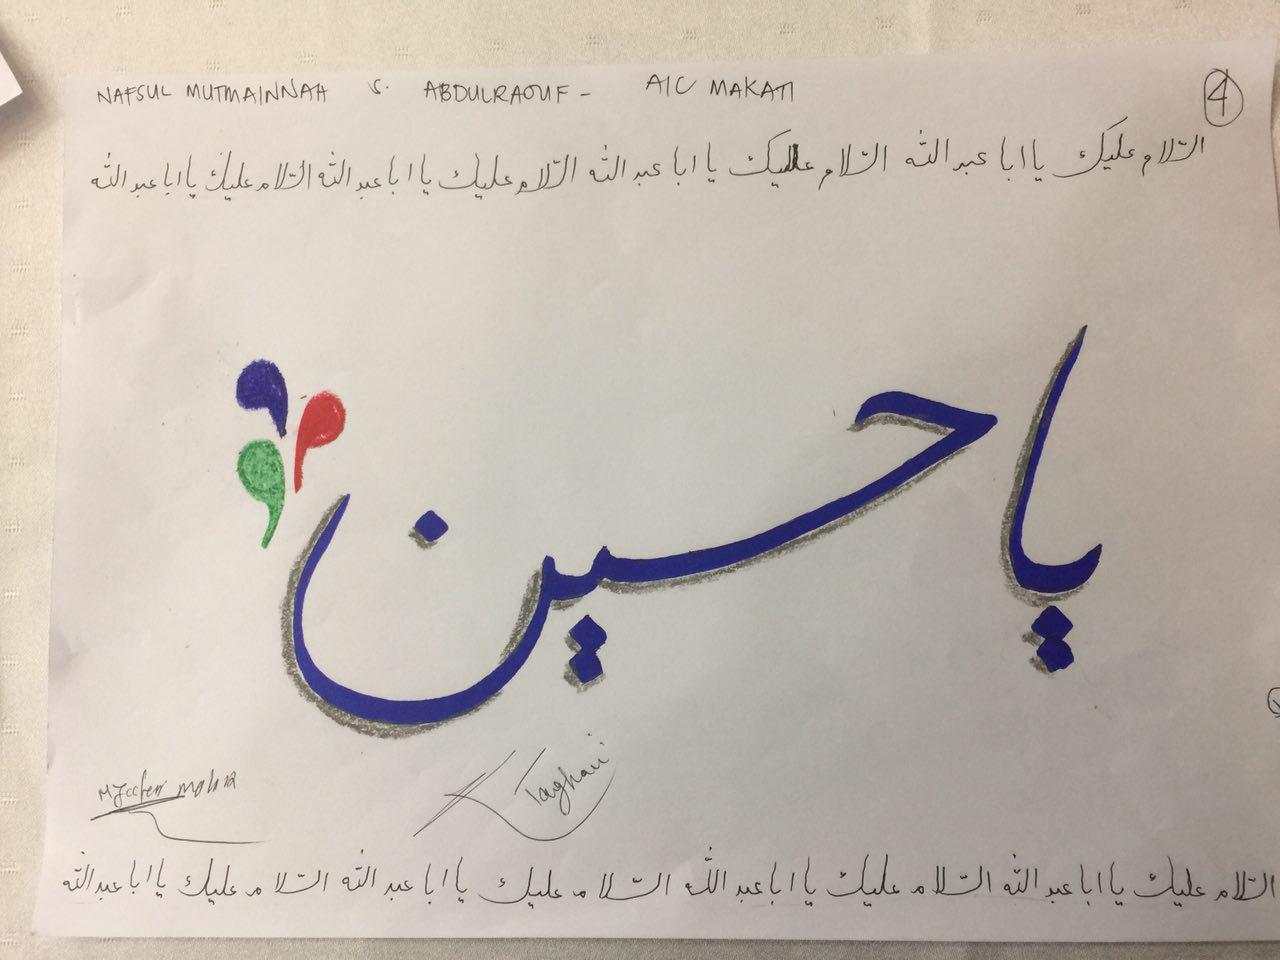 NAFSUL MUTMAINNAH S. ABDULRAOUF - AIC MAKATI
4
السّلام عليك يا ابا عبد الله السّلام عليك يا ابا عبد الله السّلام عليك يا ابا عبد الله السّلام عليك يا ابا عبد الله
يا حسين
Taghavi
السّلام عليك يا ابا عبد الله السّلام عليك يا ابا عبد الله السّلام عليك يا ابا عبد الله السّلام عليك يا ابا عبد الله